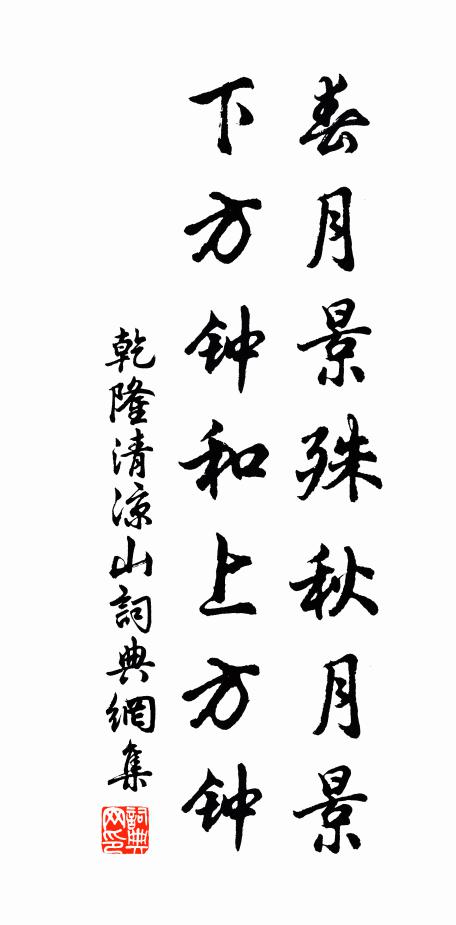 春月景殊秋月景
下方钟和上方钟
乾隆清涼山詞典網集
詞典网印